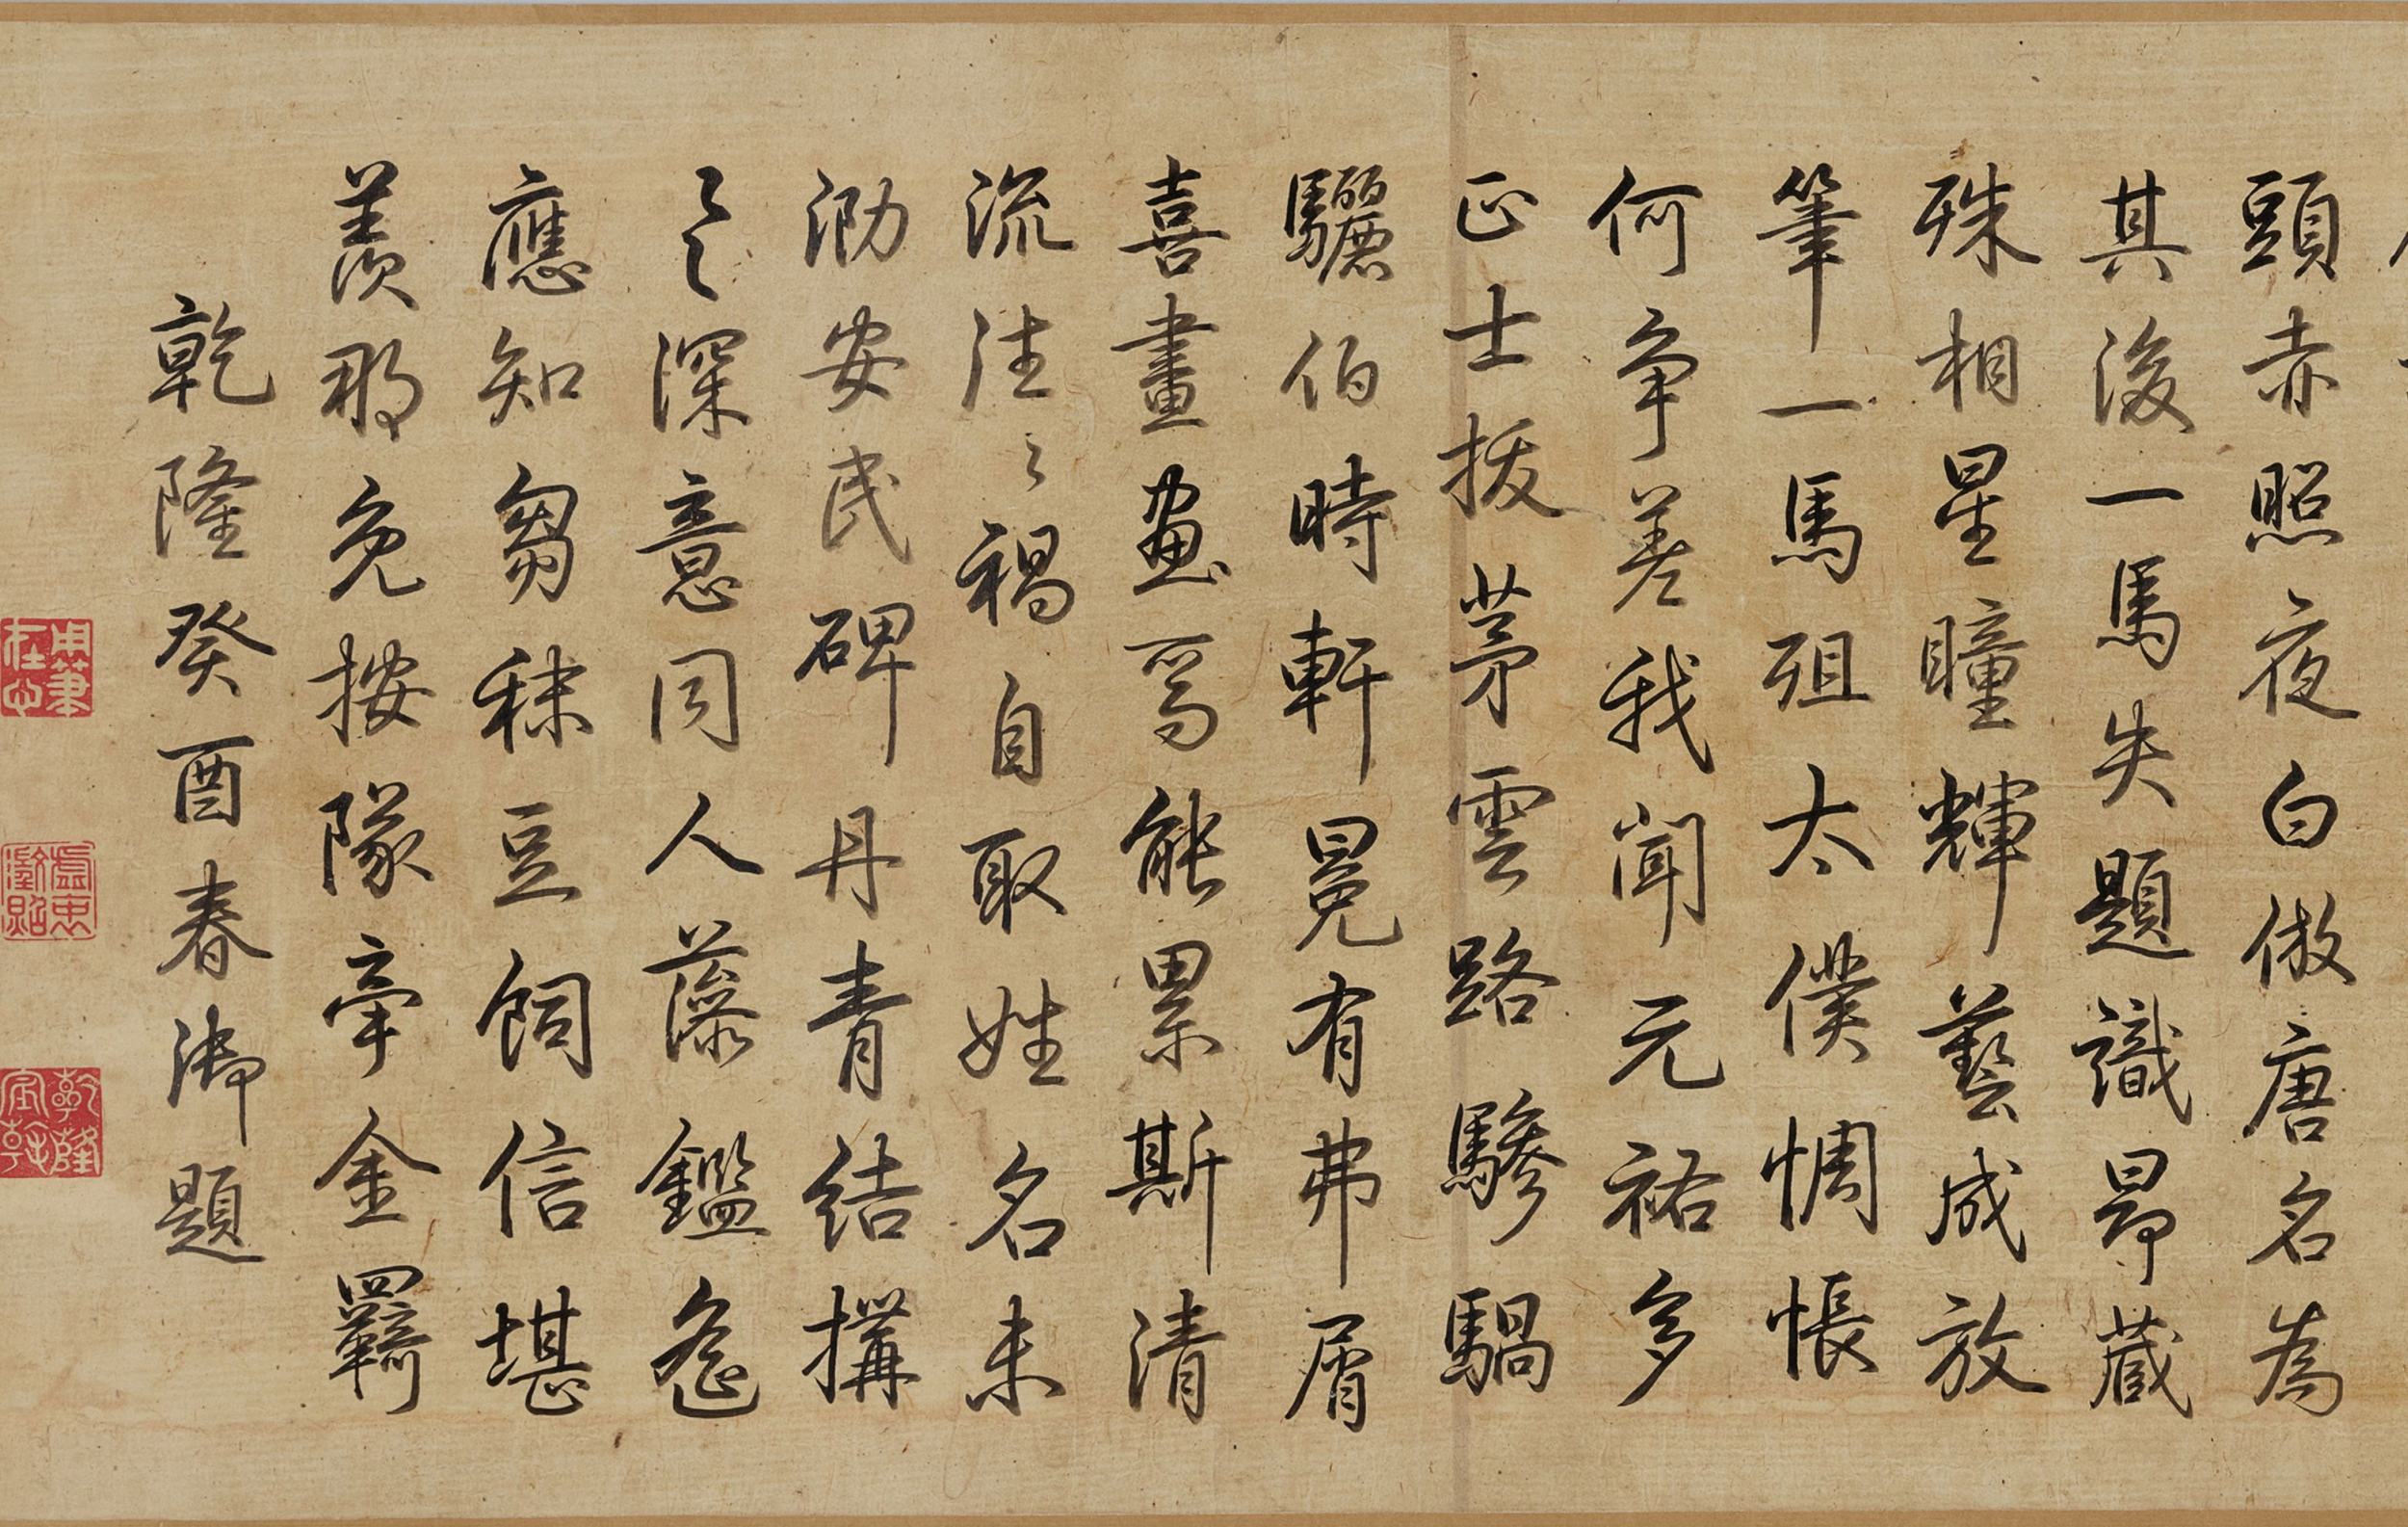 頭赤照夜白倣唐名為
其後一馬失題識昴藏
殊相星瞳輝藝成放
筆一馬殂太僕惆悵
何爭差我聞元祐多
正士拔茅雲路驂騧
驪伯時軒冕有弗屑
喜畫畫焉能累斯清
流注〻禍自取姓名未
泐安民碑丹青結搆
〻深意同人藻鑑遙
應知芻秣豆飼信堪
羨那免按隊牽金羈
乾隆癸酉春御題
用筆在心
乾隆宸翰